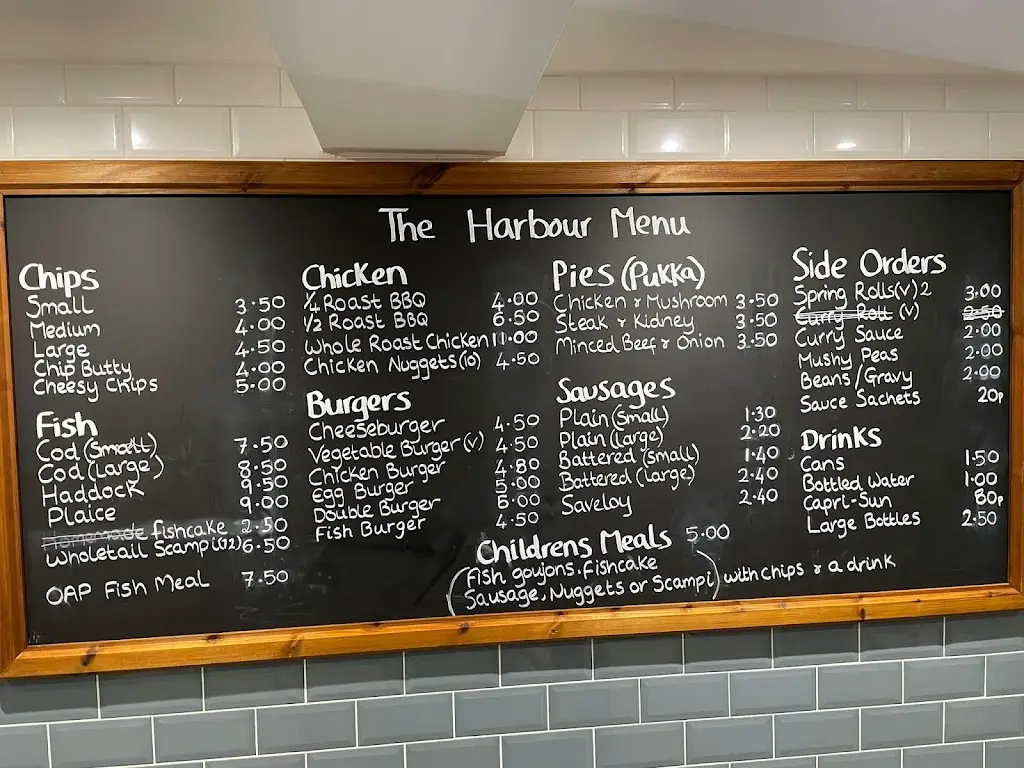 The Harbour Menu
Chips
Small 3.50
Medium 4.00
Large 4.50
Chip Butty 4.00
Cheesy Chips 5.00
Fish
Cod (Small) 7.50
Cod (Large) 8.50
Haddock 9.50
Plaice 9.00
Homemade fishcake 2.50
Wholetail Scampi (12) 6.50
OAP Fish Meal 7.50
Chicken
1/4 Roast BBQ 4.00
1/2 Roast BBQ 6.50
Whole Roast Chicken 11.00
Chicken Nuggets (10) 4.50
Burgers
Cheeseburger 4.50
Vegetable Burger (v) 4.50
Chicken Burger 4.80
Egg Burger 5.00
Double Burger 6.00
Fish Burger 4.50
Pies (Pukka)
Chicken & Mushroom 3.50
Steak & Kidney 3.50
Minced Beef & Onion 3.50
Sausages
Plain (Small) 1.30
Plain (large) 2.20
Battered (Small) 1.40
Battered (large) 2.40
Saveloy 2.40
Childrens Meals 5.00
(Fish goujons, fishcake
Sausage, Nuggets or Scampi) with chips & a drink
Side Orders
Spring Rolls (v) 2 3.00
Curry Roll (v) 2.50
Curry Sauce 2.00
Mushy Peas 2.00
Beans/Gravy 2.00
Sauce Sachets 20p
Drinks
Cans 1.50
Bottled Water 1.00
Capri-Sun 80p
Large Bottles 2.50